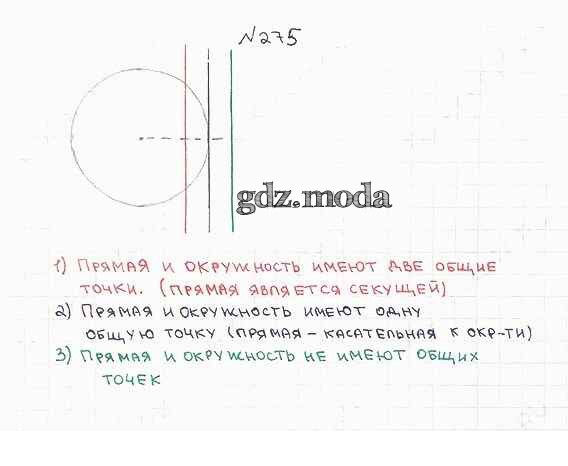 №275
gdz.moda
1) ПРЯМАЯ И ОКРУЖНОСТЬ ИМЕЮТ ДВЕ ОБЩИЕ
ТОЧКИ. (ПРЯМАЯ ЯВЛЯЕТСЯ СЕКУЩЕЙ)
2) ПРЯМАЯ И ОКРУЖНОСТЬ ИМЕЮТ ОДНУ
ОБЩУЮ ТОЧКУ (ПРЯМАЯ – КАСАТЕЛЬНАЯ К ОКР-ТИ)
3) ПРЯМАЯ И ОКРУЖНОСТЬ НЕ ИМЕЮТ ОБЩИХ
ТОЧЕК